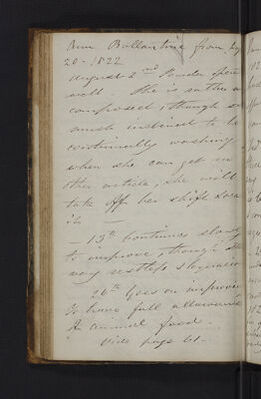 Ann Ballantine from
20 - 1822
August 2nd
well. She is rather
composed, though
much inclined to be
continually washing
when she can get no
other article, she will
take off her shift
it. —
— 13th Continues slowly
to improve, though
very restless
26th Goes on improving
to have full allowance
of animal food.
Vide page 61.